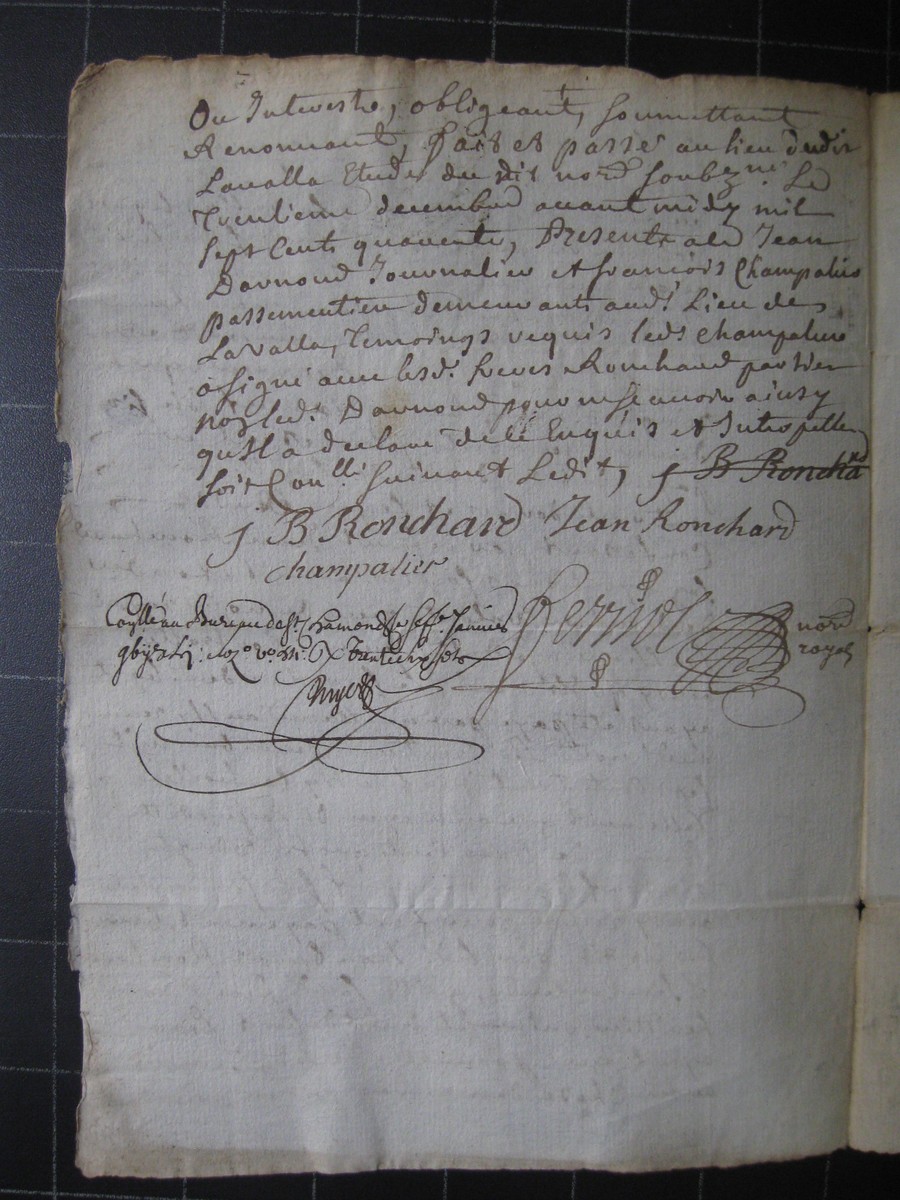 Ou Interestz, obligeant, soumettant
Renonnant, fait et passé au lieu dudit
Lavalla Etude du dit nore. soubzné. Le
Trentieme decembre avant midy mil
sept cent quarente, Presents a ce Jean
Darnond Journalier et francois Champalier
passementier demeurants aud. Lieu de
Lavalla, Temoings requis led. Champalier
a signé avec lesd. freres Ronchard parties
non led. Darnond pour ne scavoir ainsy
qu'il a declaré de ce Enquis et Interpellé
soit Conllé suivant L'edit, J B Ronchard
J B Ronchard Jean Ronchard
champalier
Perrinot nore.
royal